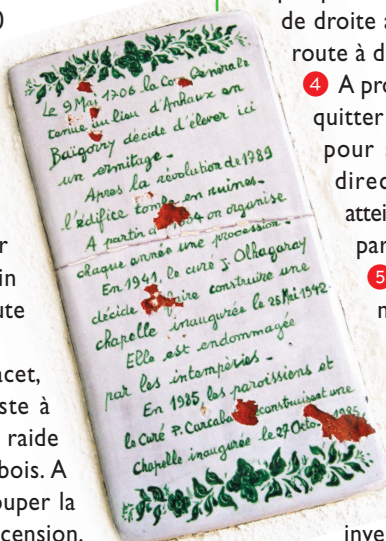 de droite à
route à d
4 A pro
quitter
pour
direc
attei
par
5
Le 9 Mai 1706 la Générale
tenue au lieu d'Anhaux en
Baïgorry décide d'élever ici
un ermitage.
Apres la révolution de 1789
l'édifice tombe en ruines.
A partir on organise
chaque année une procession.
En 1941, le curé J. Olhagaray
décide faire construire une
chapelle inaugurée le 25 Mai 1942.
Elle est endommagée
par les intempéries.
En 1985, les paroissiens et
le Curé P. construisent une
chapelle inaugurée le 27 Octo 1985.
in
ute
acet,
ste à
raide
bois. A
ouper la
cension.
inve